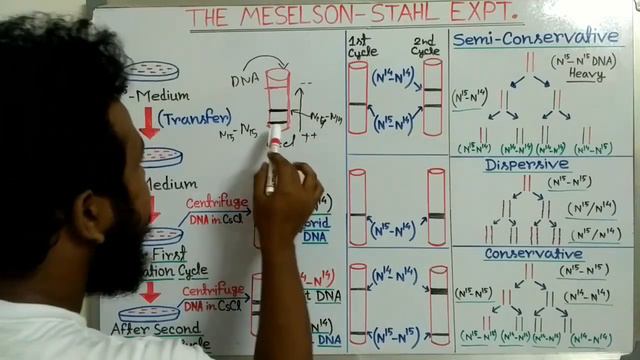 THE MESELSON-STAHL EXPT.
-Medium
(Transfer)
Medium
Centrifuge
DNA in CsCl
First
Cycle
Centrifuge
DNA in CsCl
After Second
DNA
--
N15-N14
N15-N15
++
DNA
DNA
DNA
1st Cycle
2nd Cycle
(N14-N14)
(N15-N14)
(N15-N14)
(N14-N14)
(N15-N15)
Semi-Conservative
(N15-N15 DNA)
Heavy
(N15-N14)
(N15N14)
(N14-N14)
(N14-N14)
(N14-N15)
Dispersive
(N15-N15)
(N15/N14)
(N15/N14)
Conservative
(N15-N15)
(N15-N15)
(N14-N14)
(N15-N15)
(N14-N14)
(N14-N14)
(N14-N14)